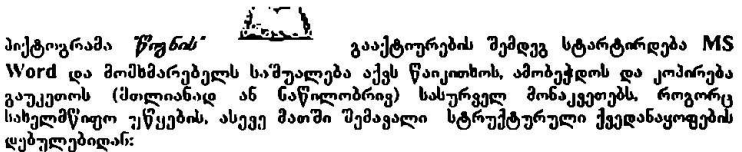 პიქტოგრამა "წიგნის" გააქტიურების შემდეგ სტარტირდება MS
Word და მომხმარებელს საშუალება აქვს წაიკითხოს, ამობეჭდოს და კოპირება
გაუკეთოს (მთლიანად ან ნაწილობრივ) სასურველ მონაკვეთებს, როგორც
სახელმწიფო უწყების, ასევე მათში შემავალი სტრუქტურული ქვედანაყოფების
დებულებიდან: